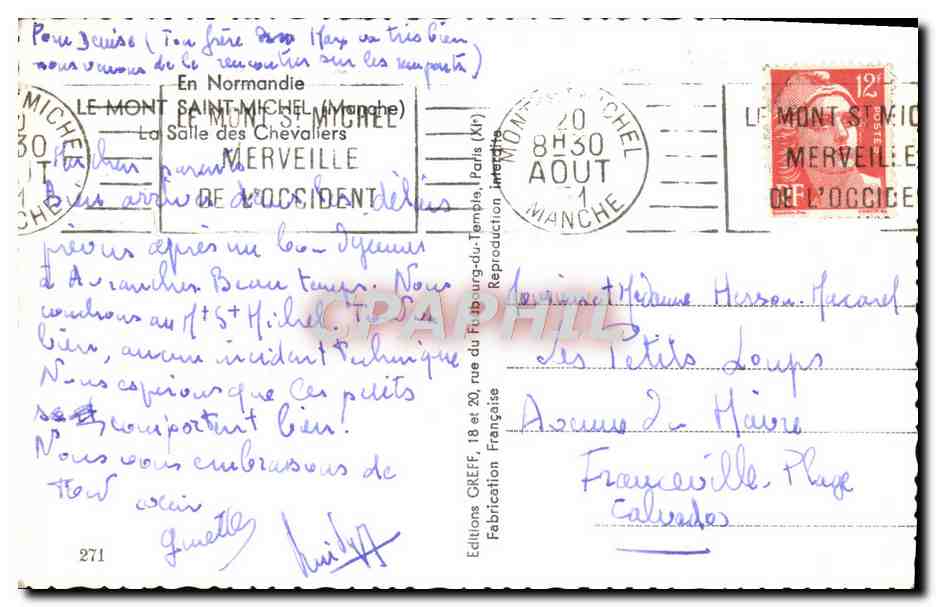 Pour Denise (Ton frère Max va très bien
nous venons de le rencontrer sur les remparts)
En Normandie
LE MONT SAINT-MICHEL (Manche)
La Salle des Chevaliers
LE MONT ST MICHEL
MERVEILLE
DE L'OCCIDENT
MONT ST MICHEL
20
8H30
AOUT
MANCHE
12F
POSTES
RF
LE MONT ST MIC
MERVEILLE
DE L'OCCIDE
chers parents
Bien arrivés dans les délais
prévus après un bon déjeuner
à Avranches. Beau temps. Nous
couchons au Mt St Michel. Tout va
bien, aucun incident technique
Nous espérons que les petits
se comportent bien!
Nous vous embrassons de
tout cœur
Ginette
271
Editions GREFF, 18 et 20, rue du Faubourg-du-Temple, Paris (XIe)
Fabrication Française Reproduction interdite
CPAPHIL
Monsieur et Madame
Les Petits Loups
Avenue du Maire
Franceville-Plage
Calvados